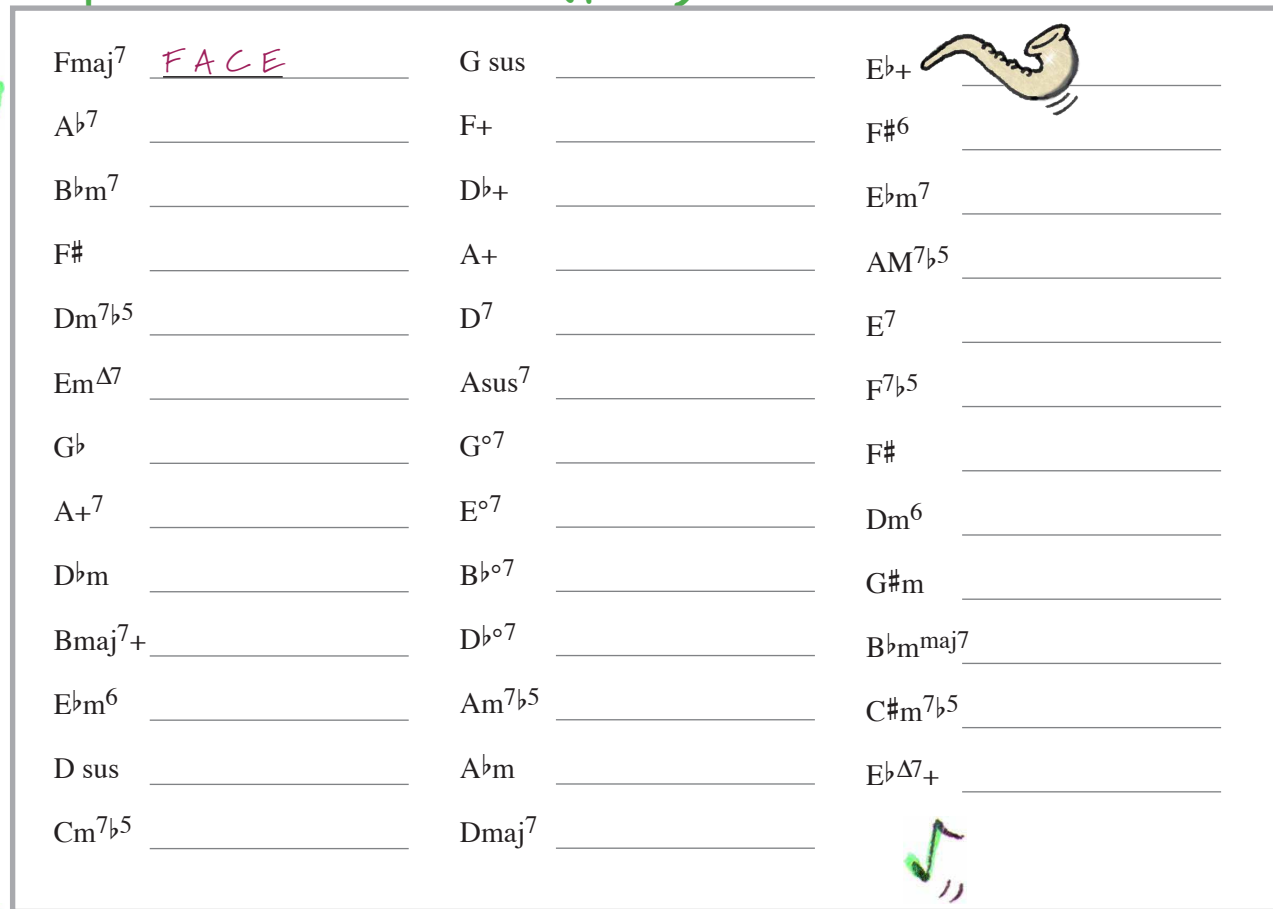 Fmaj7 F A C E
A♭7
B♭m7
F#
Dm7♭5
EmΔ7
G♭
A+7
D♭m
Bmaj7+
E♭m6
D sus
Cm7♭5
G sus
F+
D♭+
A+
D7
Asus7
G°7
E°7
B♭°7
D♭°7
Am7♭5
A♭m
Dmaj7
E♭+
F#6
E♭m7
AM7♭5
E7
F7♭5
F#
Dm6
G#m
B♭mmaj7
C#m7♭5
E♭Δ7+